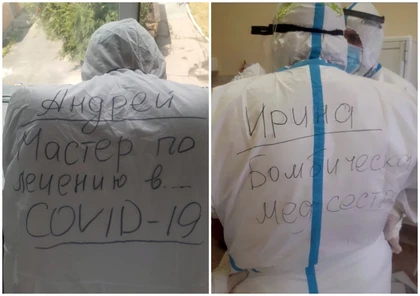 Андрей
Мастер по
лечению в....
COVID-19
Ирина
Бомбическая
медсестра